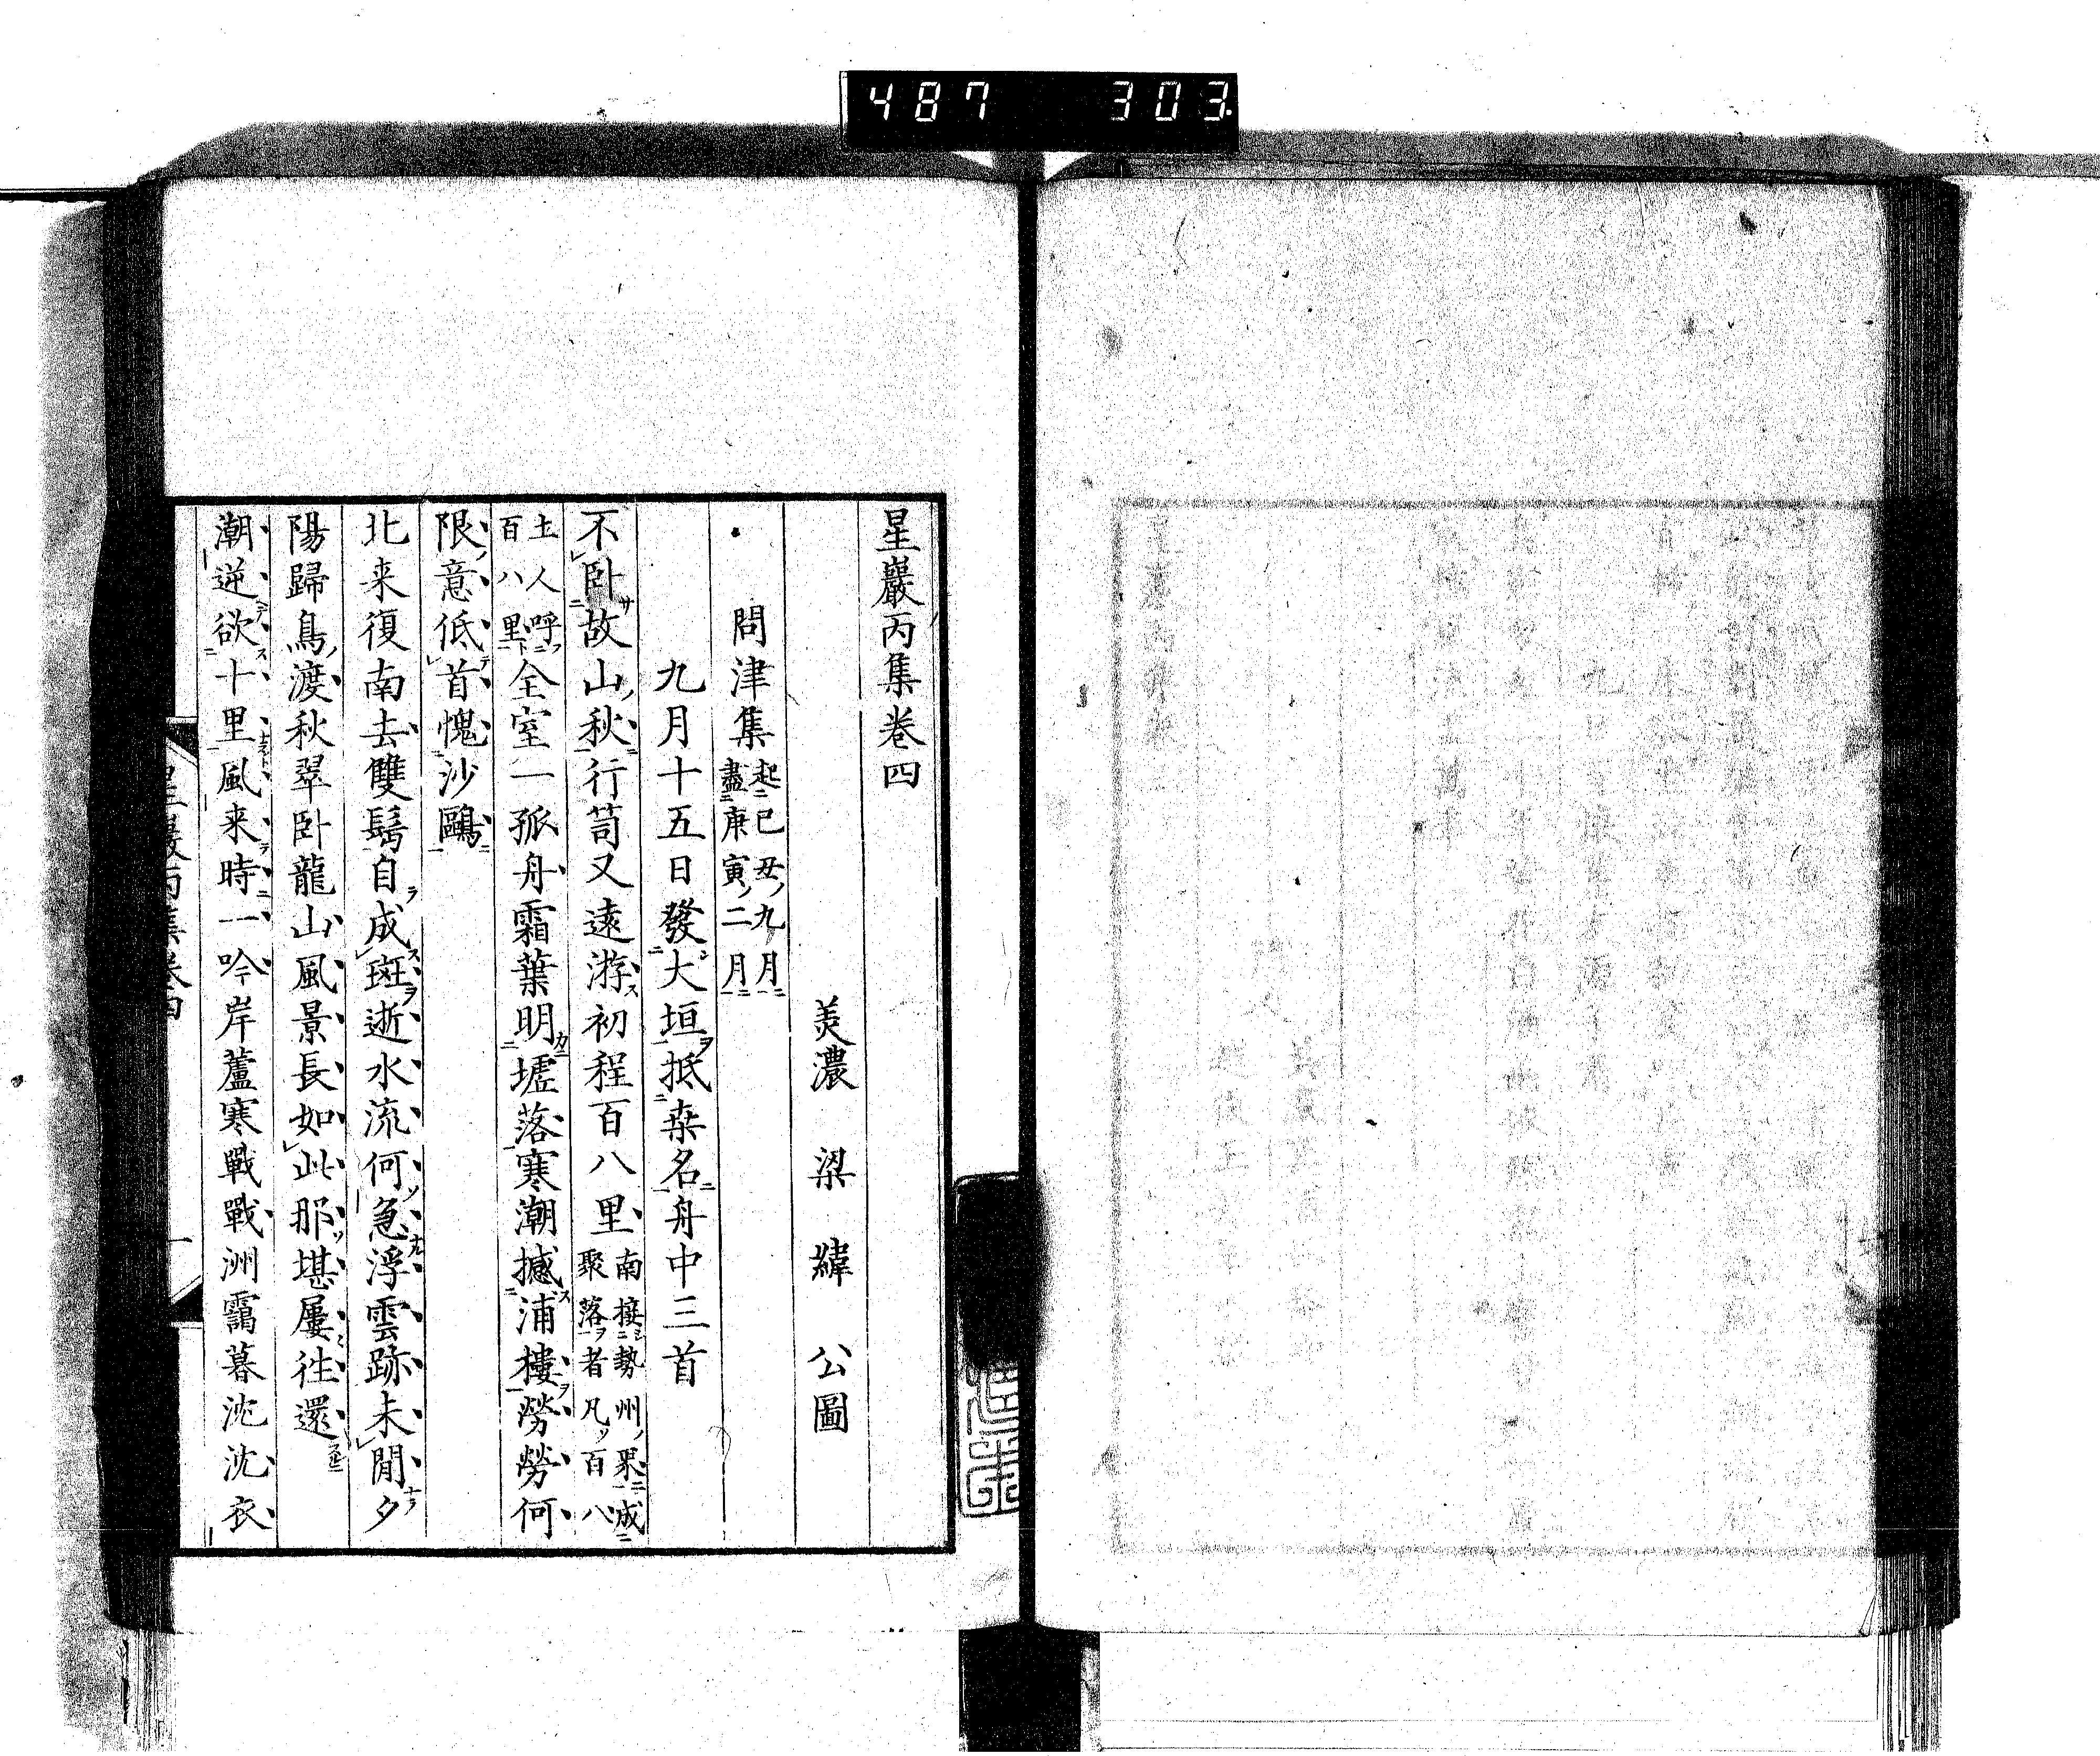 487 303
星巖丙集卷四
美濃 梁 緯 公圖
問津集 起己丑九月 盡庚寅二月
九月十五日發大垣抵桒名舟中三首
不卧故山秋行笥又遠游初程百八里 南接勢州界成 聚落者凡百八
土人呼 百八里 全室一孤舟霜葉明墟落寒潮撼浦樓勞勞何
限意低首愧沙鷗
北来復南去雙鬂自成斑逝水流何急浮雲跡未閒夕
陽歸鳥渡秋翠卧龍山風景長如此那堪屢往還
潮逆欲十里風来時一吟岸蘆寒戰戰洲靄暮沈沈衣
星巖丙集卷四
一